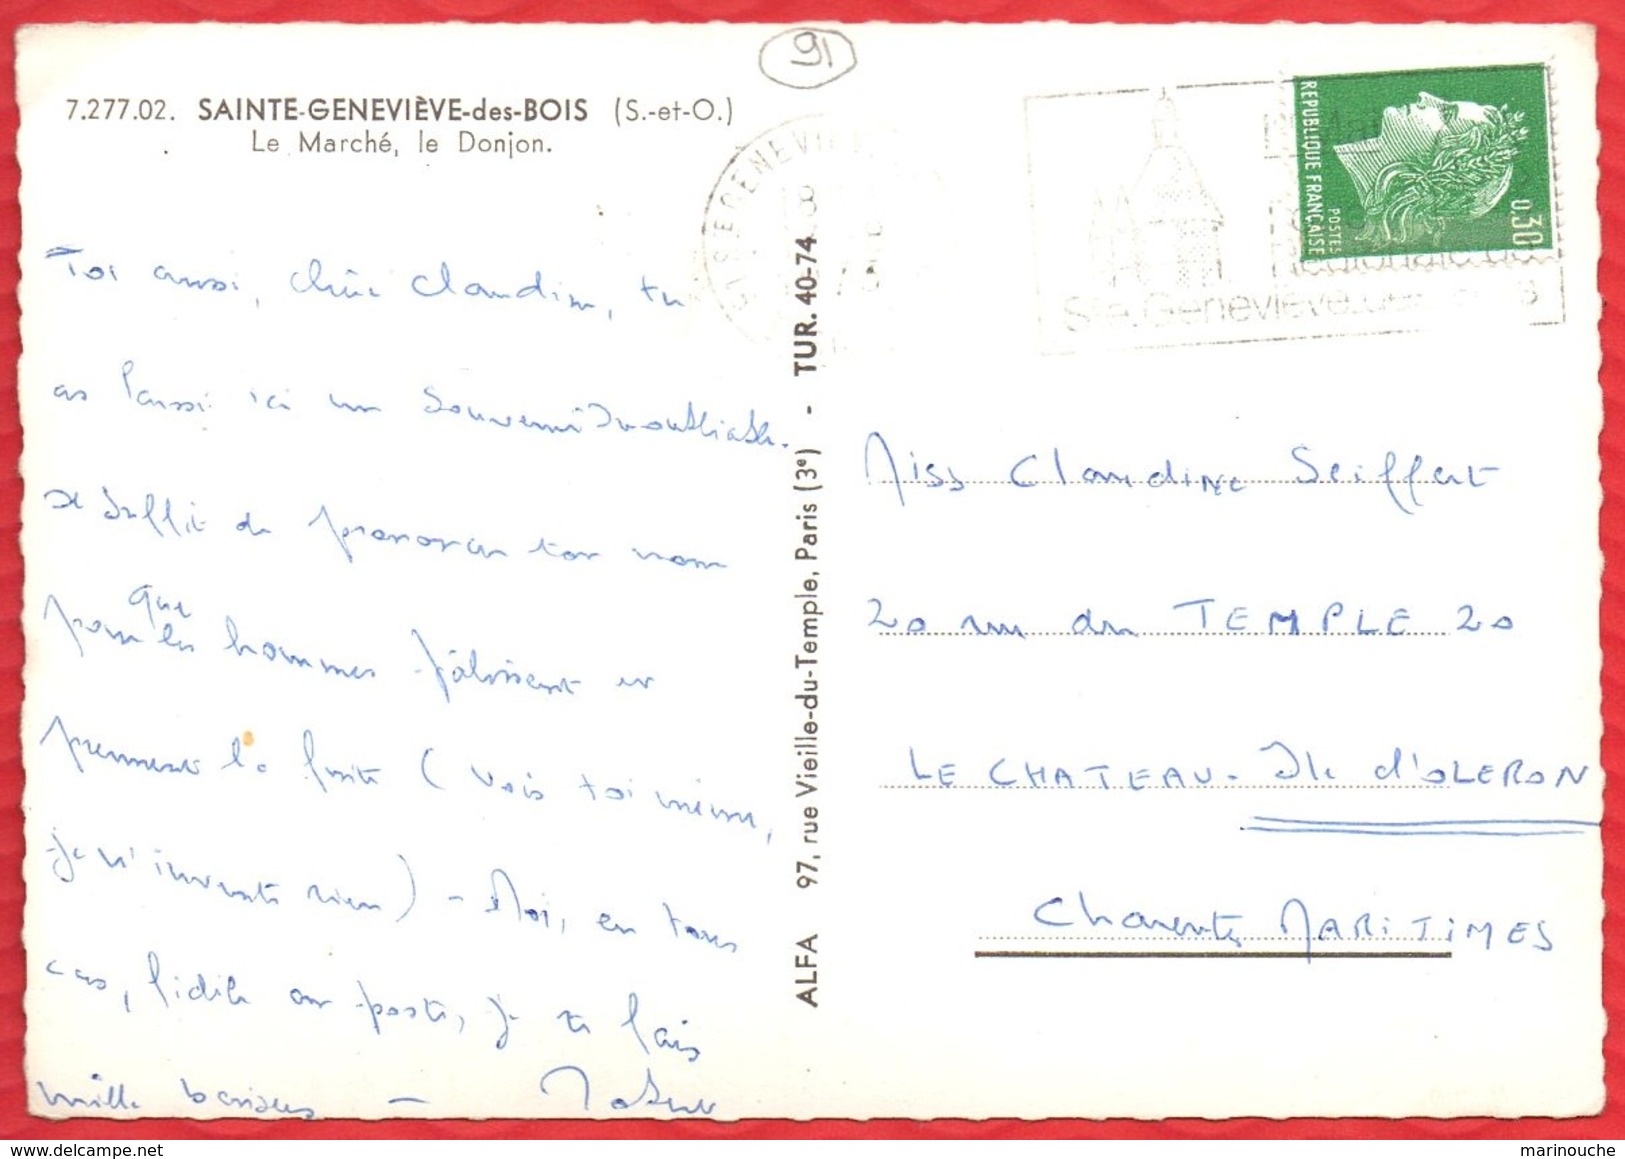 91
7.277.02. SAINTE-GENEVIÈVE-des-BOIS (S.-et-O.)
Le Marché, le Donjon.
Toi aussi, chère Claudine, tu
as laissé ici un souvenir inoubliable.
Il suffit de prononcer ton nom
pour que les hommes pâlissent et
prennent la fuite (vois toi même,
je n'invente rien) - Moi, en tous
cas, fidèle au poste, je te fais
mille baisers -
ALFA 97, rue Vieille-du-Temple, Paris (3e) - TUR. 40-74
Ste.Geneviève.des
REPUBLIQUE FRANÇAISE
POSTES
0.30
Miss Claudine Seiffert
20 rue du TEMPLE 20
LE CHATEAU - Ile d'OLERON
Charente MARITIMES
marinouche